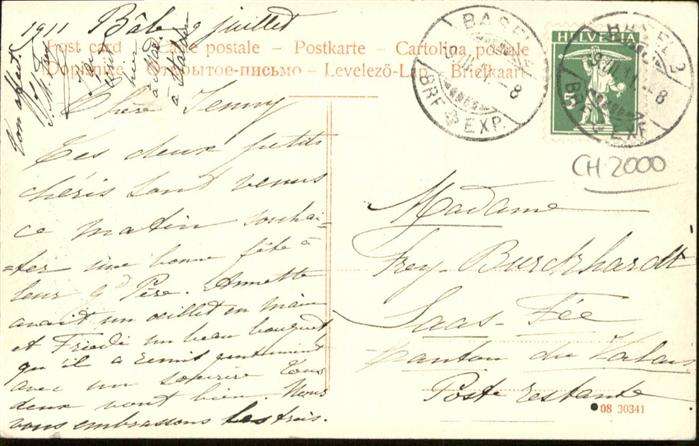 1911 Bâle 9 juillet
Post card — Carte postale — Postkarte — Cartolina postale
Dopisnice — Открытое письмо — Levelező-Lap — Briefkaart
Chère Jenny
Tes deux petits
chéris sont venus
ce matin souhai-
-ter une bonne fête à
leur gd Père. Annette
avait un œillet en main
et Friedi un beau bouquet
qu'il a remis gentiment
avec un sourire Tous
deux vont bien. Nous
vous embrassons les trois.
Von affect.
BASEL 2
BRF. EXP.
8
HELVETIA
5
BASEL 2
BRF. EXP.
8
CH-2000
Madame
Frey-Burckhardt
Saas-Fée
Canton du Valais
Poste restante
08 30341